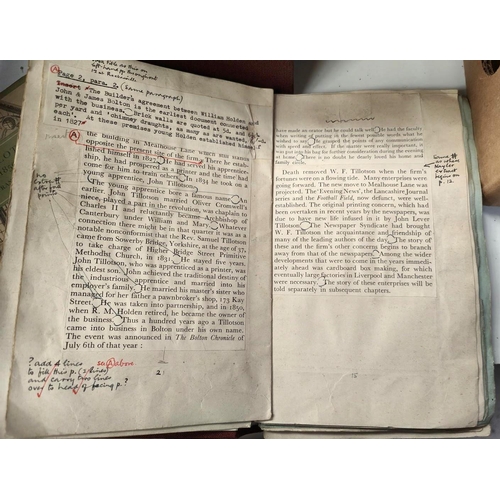 Page 2, para. 2, (same paragraph)
Insert The Builder's agreement between William Holden and
John & James Bolton is the earliest document connected
with the business. Brick walls are quoted at 5d. and
per yard and 'chimney draughts, as many as are wanted,
each'. At these premises young Holden established himself
in 1827
A
the building in Mealhouse Lane which now stands
opposite the present site of the firm. There he estab-
lished himself in 1827. He had served his apprentice-
ship, he had prospered as a printer and the time had
come for him to train others. In 1834 he took on a
young apprentice, John Tillotson.
The young apprentice bore a famous name. An
earlier John Tillotson married Oliver Cromwell's
niece, played a part in the revolution, was chaplain to
Charles II and reluctantly became Archbishop of
Canterbury under William and Mary. Whatever
connection there might be in that quarter it was as a
notable nonconformist that the Rev. Samuel Tillotson
came from Sowerby Bridge, Yorkshire, at the age of 57,
to take charge of Higher Bridge Street Primitive
Methodist Church, in 1831. He stayed five years.
John Tillotson, who was apprenticed as a printer, was
his eldest son. John achieved the traditional destiny of
the industrious apprentice and married into his
employer's family. He married his master's sister who
managed for her father a pawnbroker's shop, 173 Kay
Street. He was taken into partnership, and in 1850,
when R. M. Holden retired, he became the owner of
the business. Thus a hundred years ago a Tillotson
came into business in Bolton under his own name.
The event was announced in The Bolton Chronicle of
July 6th of that year :
? add 4 lines see A above
to fill this p. (2 lines)
and carry two lines
over to head of facing p.?
2
have made an orator but he could talk well. He had the faculty
when writing of putting in the fewest possible words what he
wished to say. He grasped the points of any communication
with speed and effect. If the matter were really important, it
was put into his bag for further consideration during the evening
at home. There is no doubt he dearly loved his home and
family circle.
Death removed W. F. Tillotson when the firm's
fortunes were on a flowing tide. Many enterprises were
going forward. The new move to Mealhouse Lane was
projected. The 'Evening News', the Lancashire Journal
series and the Football Field, now defunct, were well-
established. The original printing concern, which had
been overtaken in recent years by the newspapers, was
due to have new life infused in it by John Lever
Tillotson. The Newspaper Syndicate had brought
W. F. Tillotson the acquaintance and friendship of
many of the leading authors of the day. The story of
these and the firm's other concerns begins to branch
away from that of the newspapers. Among the wider
developments that were to come in the years immedi-
ately ahead was cardboard box making, for which
eventually large factories in Liverpool and Manchester
were necessary. The story of these enterprises will be
told separately in subsequent chapters.